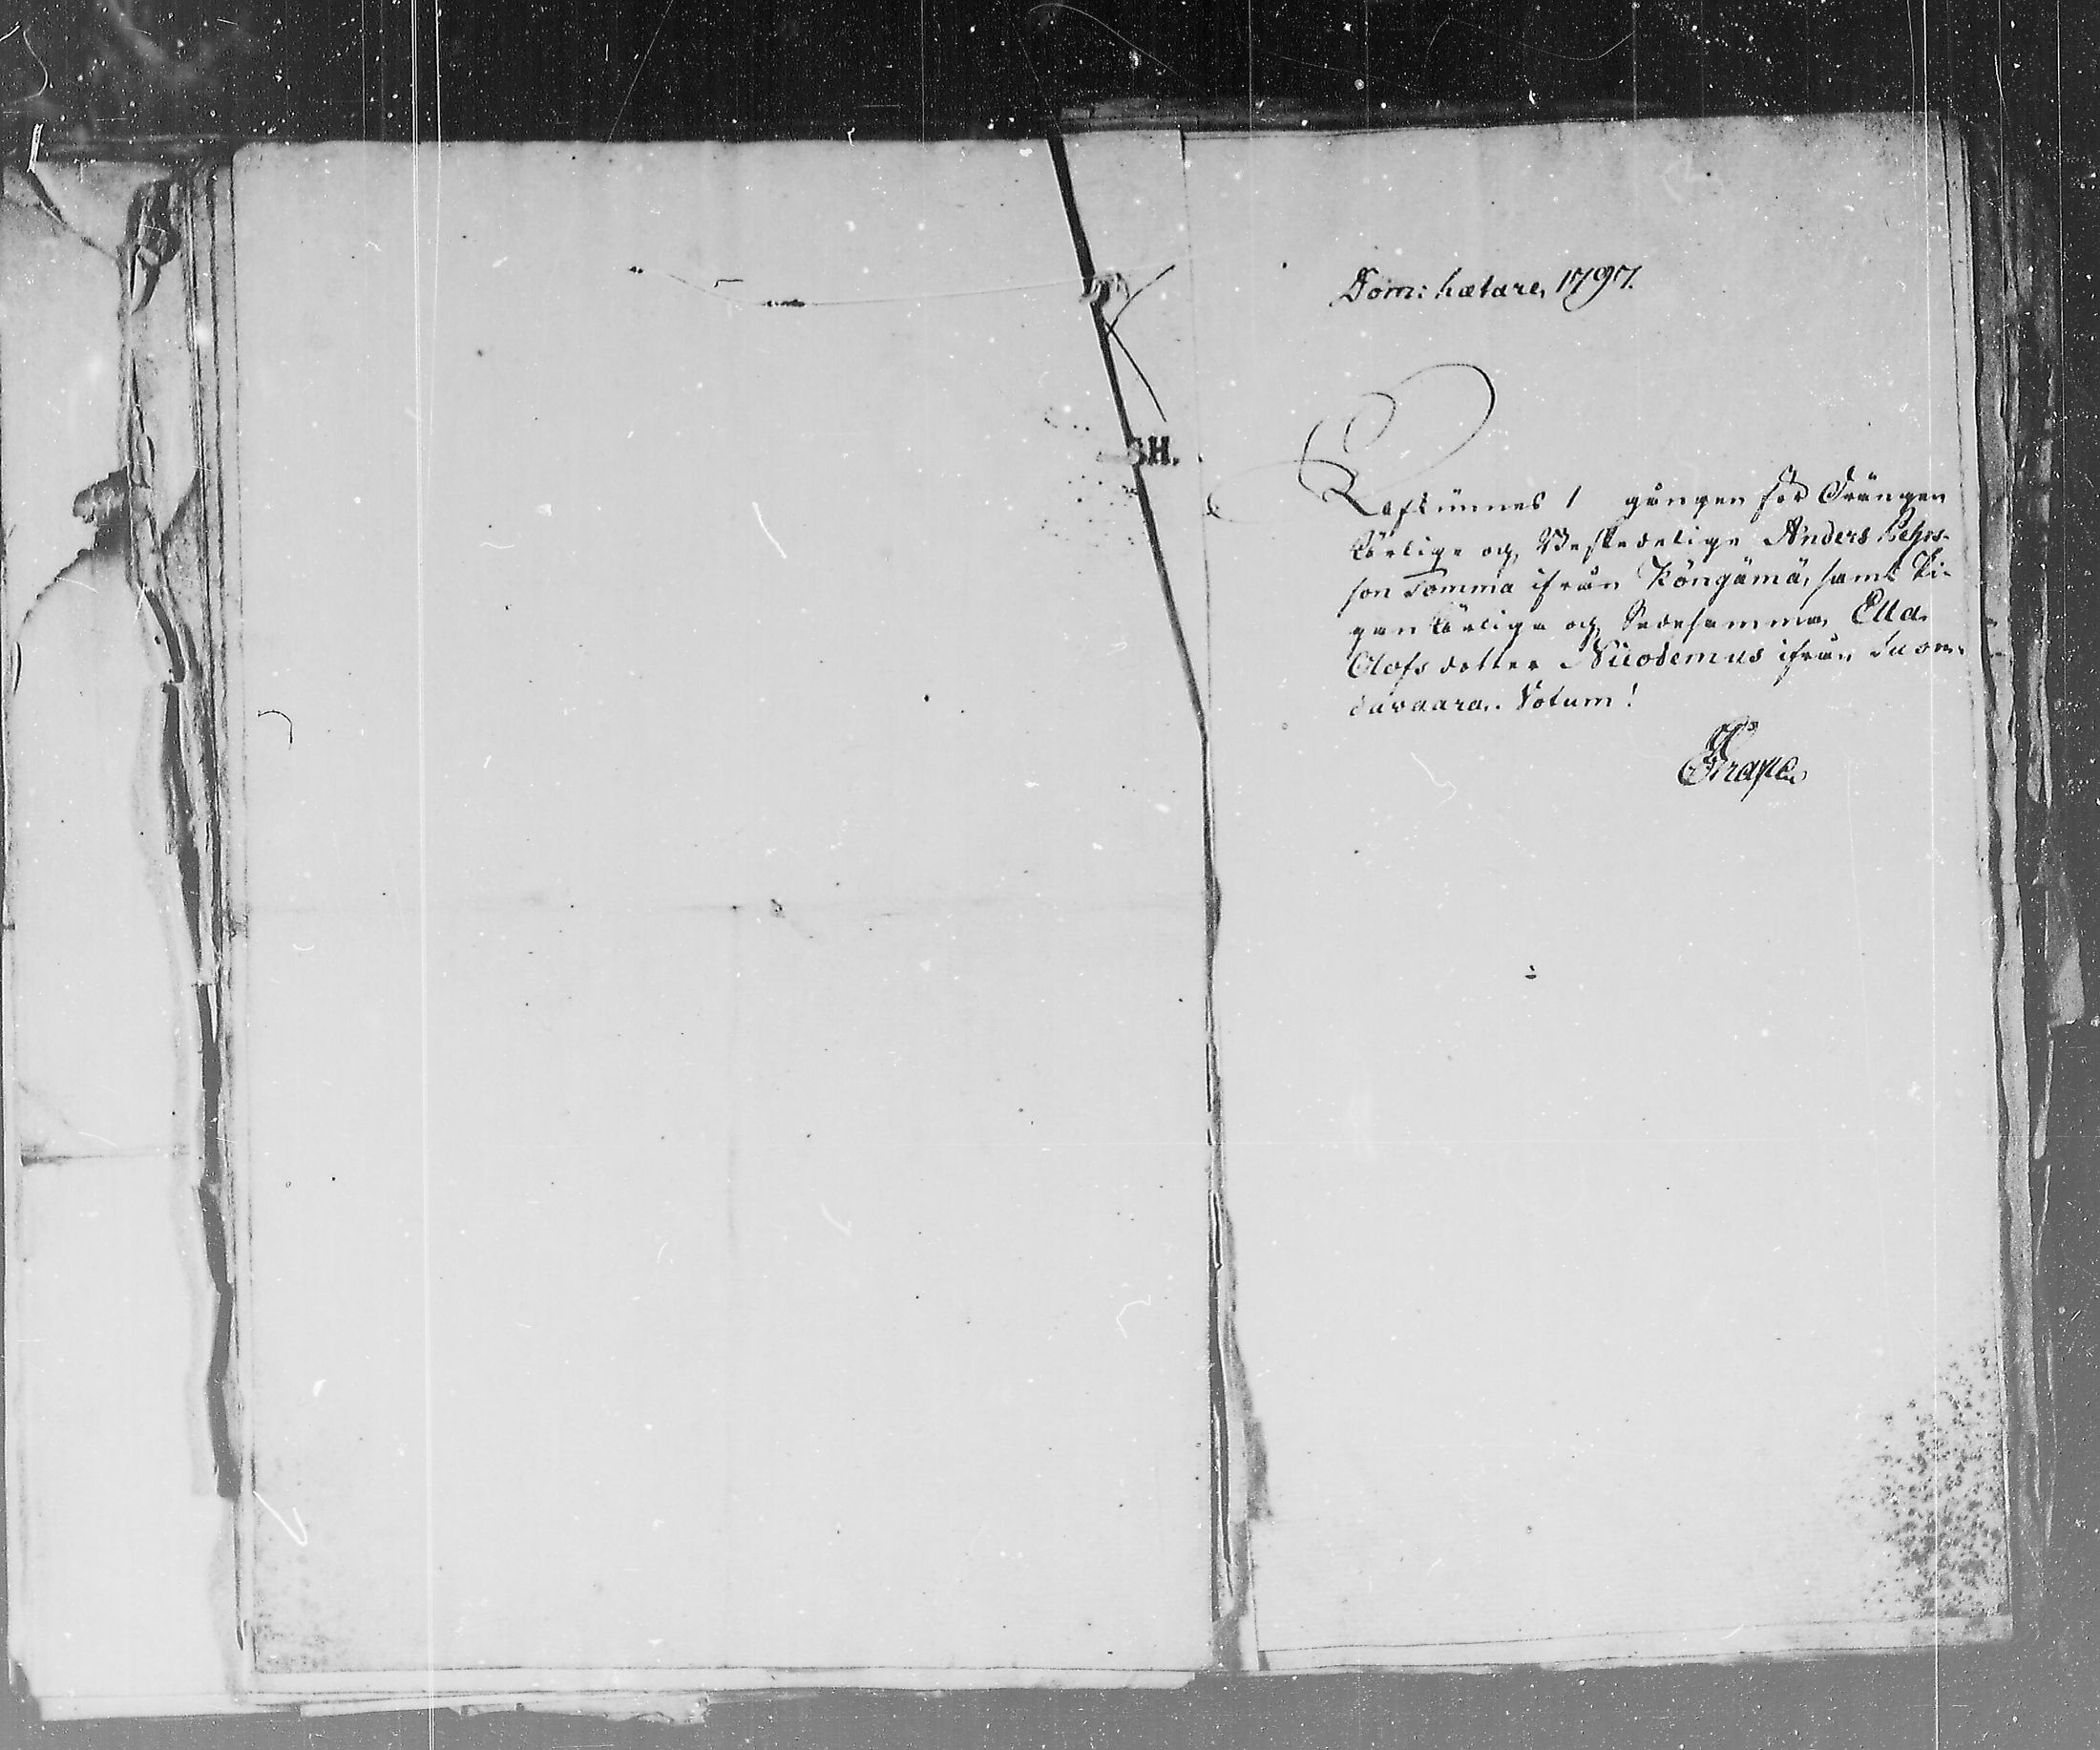 Dom: Lætare, 1797.
SH.
Lyses 1 gången för Drängen
ärlige och Beskedelige Anders Pehrs-
son Tomma ifrån Köngämä, samt Pi-
gan ärliga och Sedesamma Ella
Olofsdotter Nicodemus ifrån Suon-
davaara. Votum!